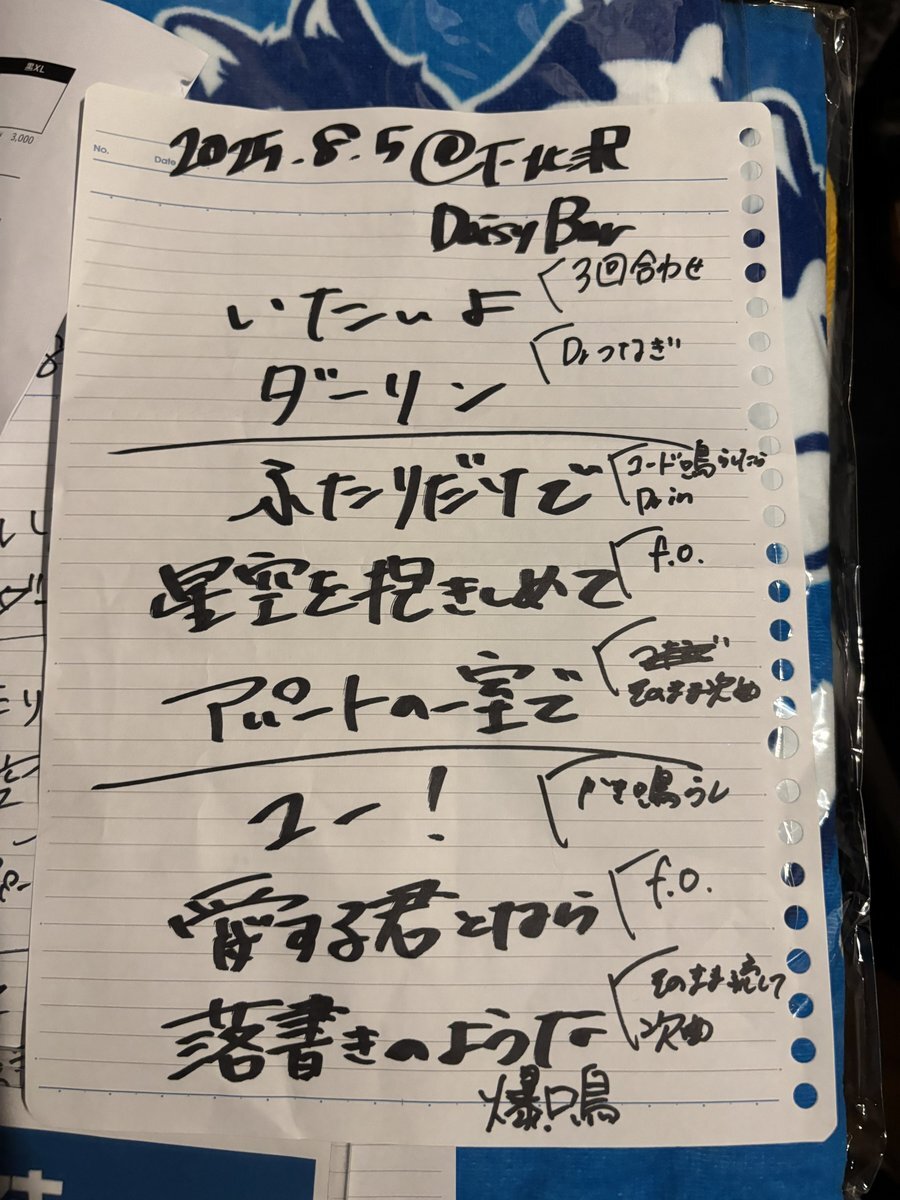 黒XL
3,000
No.
Date
2025.8.5@下北沢
Daisy Bar
いたいよ
3回合わせ
ダーリン
Drつなぎ
ふたりだけで
コード鳴らしたら
Dr in
星空を抱きしめて
f.o.
アパートの一室で
そのまま次曲
ユー!
鳴らし
愛する君となら
f.o.
落書きのような
そのまま流して
次曲
爆鳴